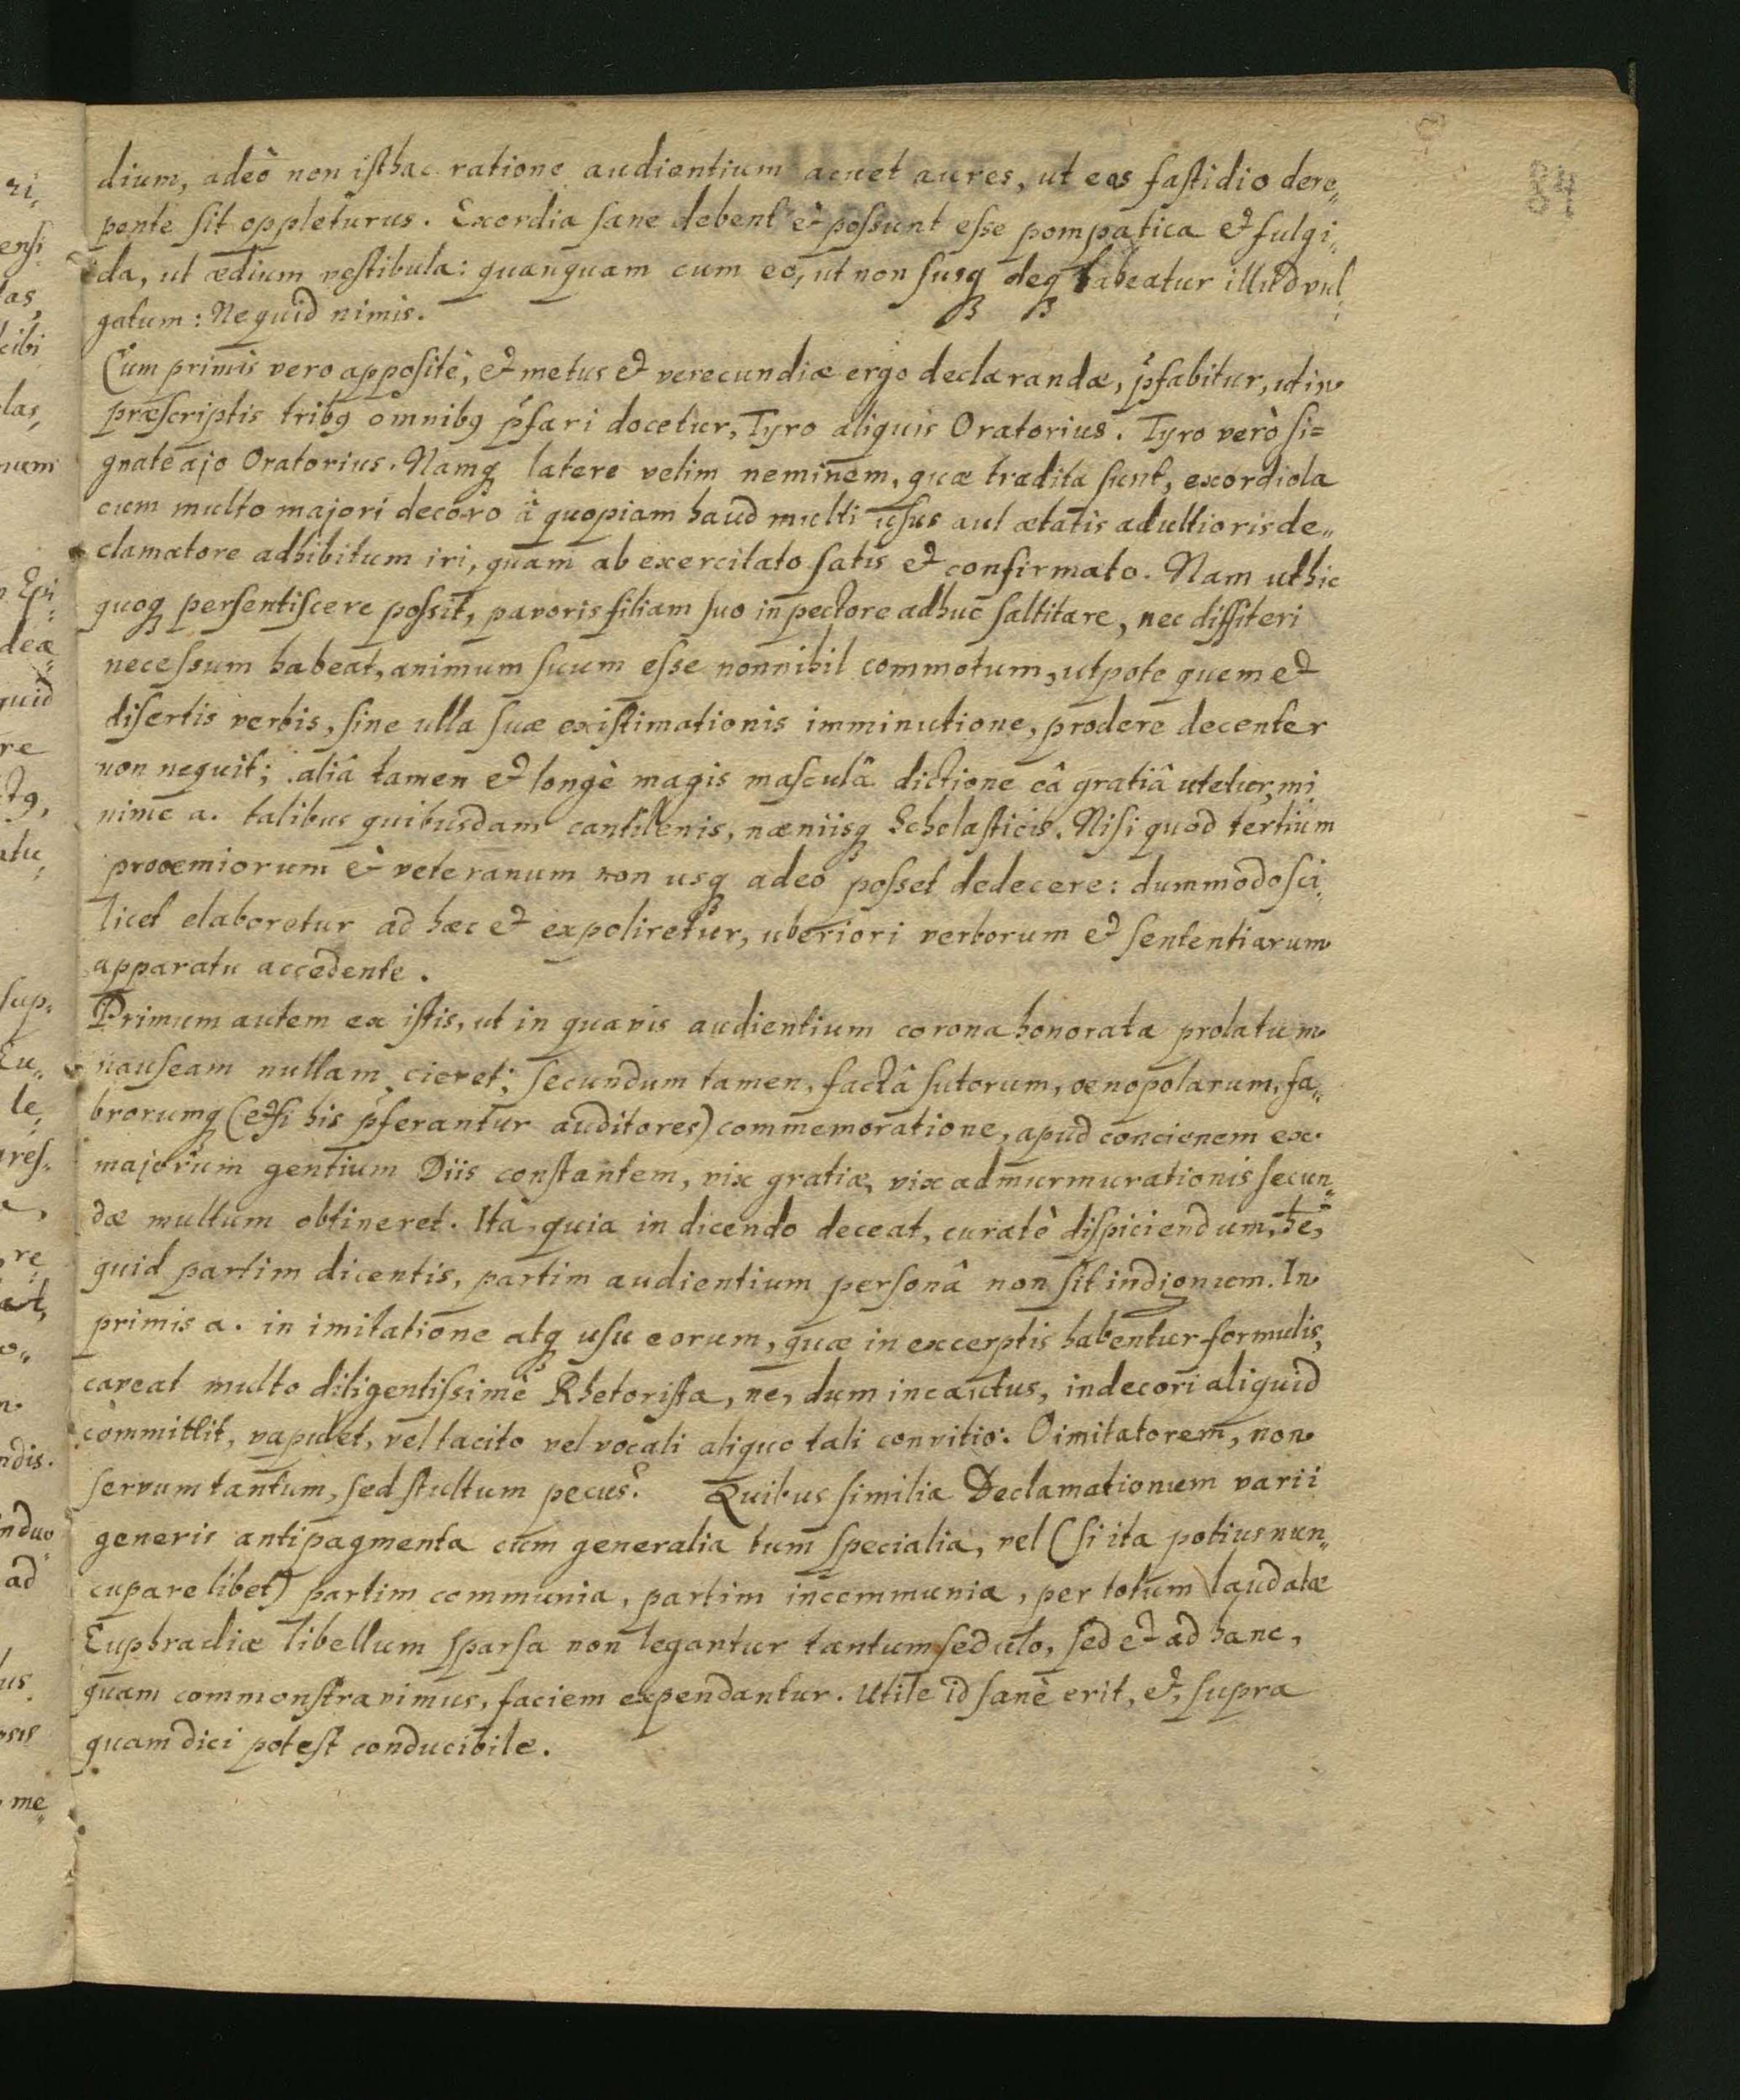 84
dium, adeò non isthac ratione audientium acuet aures, ut eas fastidio dere„
pente sit oppleturus. Exordia sane debent & possunt esse pompatica & fulgi„
da, ut ædium vestibula: quanquam cum eo, ut non susq; deq; habeatur illud vul„
gatum: Nequid nimis.
Cum primis vero appositè, & metus & verecundiæ ergo declarandæ, p̃fabitur, ut in
præscriptis tribꝰ omnibꝰ p̃fari docetur, Tyro aliquis Oratorius. Tyro verò si=
gnate ajo Oratorius. Namq; latere velim neminem, quæ tradita sunt, exordiola
cum multo majori decoro à quopiam haud multi usus aut ætatis adultioris de„
clamatore adhibitum iri, quam ab exercitato satis & confirmato. Nam ut hic
quoq; persentiscere possit, pavoris filiam suo in pectore adhuc saltitare, nec diffiteri
necessum habeat, animum suum esse nonnihil commotum, utpote quem &
disertis verbis, sine ulla suæ existimationis imminutione, prodere decenter
non nequit; aliâ tamen & longè magis masculâ dictione eâ gratiâ utetur, mi
nime a. talibus quibusdam cantilenis, næniisq; Scholasticis. Nisi quod tertium
prooemiorum & veteranum non usq; adeo posset dedecere: dummodo sci„
licet elaboretur ad hæc & expoliretur, uberiori verborum & sententiarum
apparatu accedente.
Primum autem ex istis, ut in quavis audientium corona honorata prolatum
nauseam nullam cieret; secundum tamen, factâ sutorum, oenopolarum, fa„
brorumq; (etsi his p̃ferantur auditores) commemoratione, apud concionem ex
majorum gentium Diis constantem, vix gratiæ, vix admurmurationis secun„
dæ multum obtineret. Ita, quia in dicendo deceat, curatè dispiciendum, h̃e,
quid partim dicentis, partim audientium personâ non sit indignum. In
primis a. in imitatione atq; usu eorum, quæ in excerptis habentur formulis,
caveat multo diligentissimè Rhetorista, ne, dum incautus, indecori aliquid
committit, vapulet, vel tacito vel vocali aliquo tali convitio: O imitatorem, non
servum tantum, sed stultum pecus? Quibus similia Declamationum varii
generis antipagmenta cum generalia tum specialia, vel (si ita potius nun„
cupare libet) partim communia, partim incommunia, per totum laudatæ
Euphradiæ libellum sparsa non legantur tantum sedulo, sed & ad hanc,
quam commonstravimus, faciem expendantur. Utile id sanè erit, &, supra
quam dici potest conducibile.